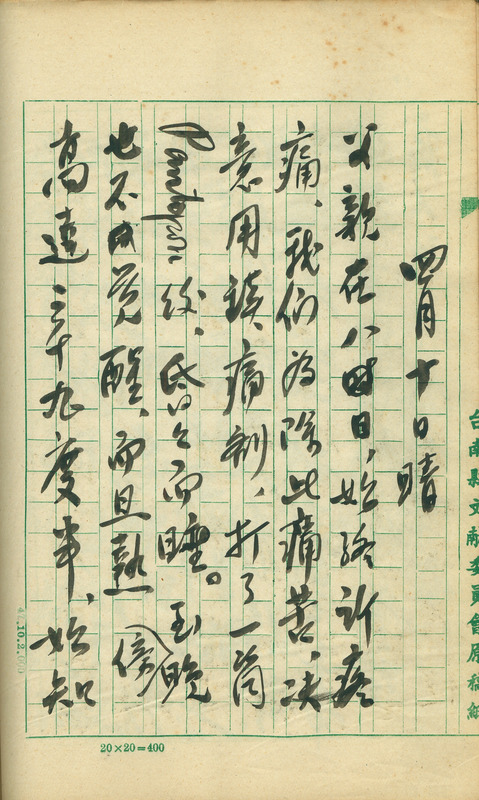 四月十日晴
父親在八時日,始終訴疼
痛、我們為除此痛苦、决
意用鎮痛剤、打了一筒
後、昏々而睡。至晚
(傍)
也不成覚醒、而且熱
高達三十九度半、始知
台南縣文献委員會原稿紙
10.2.
20×20=400